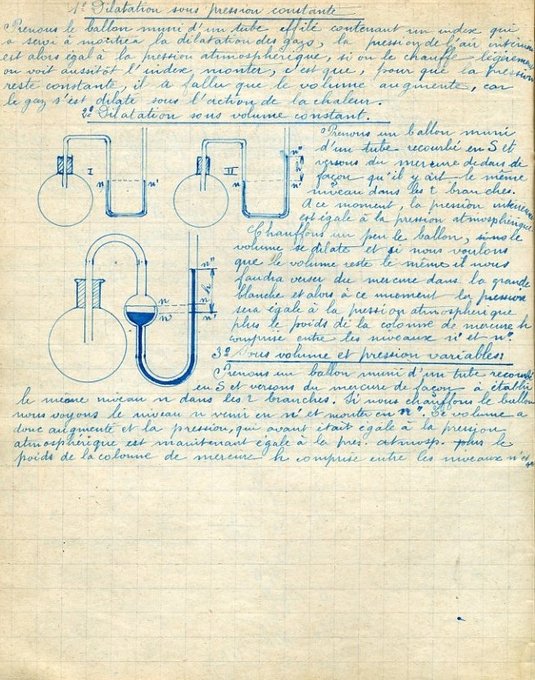 1º Dilatation sous pression constante
Prenons le ballon muni d'un tube effilé contenant un index qui
a servi à montrer la dilatation des gazs, la pression de l'air intérieur
est alors égal à la pression atmosphérique, si on le chauffe légèrement
on voit aussitôt l'index, monter, c'est que, pour que la pression
reste constante, il a fallu que le volume augmente, car
le gaz s'est dilaté sous l'action de la chaleur.
2º Dilatation sous volume constant.
Prenons un ballon muni
d'un tube recourbé en S et
versons du mercure dedans de
façon qu'il y ait le même
niveau dans les 2 branches.
A ce moment, la pression intérieure
est égale à la pression atmosphérique
I
n
n'
II
n
n'
n''
h
Chauffons un peu le ballon, sino le
volume se dilate et si nous voulons
que le volume reste le même il nous
faudra verser du mercure dans la grande
blanche et alors à ce moment la pression
sera égale à la pression atmosphérique
plus le poids de la colonne de mercure h
comprise entre les niveaux n' et n''.
n''
h
n
n
n'
n'
3º Sous volume et pression variables.
Prenons un ballon muni d'un tube recourbé
en S et versons du mercure de façon à établir
le même niveau n dans les 2 branches. Si nous chauffons le ballon
nous voyons le niveau n venir en n' et monter en n''. Le volume a
donc augmenté et la pression, qui avant était égale à la pression
atmosphérique est maintenant égale à la pres. atmosp. plus le
poids de la colonne de mercure h comprise entre les niveaux n' et n''